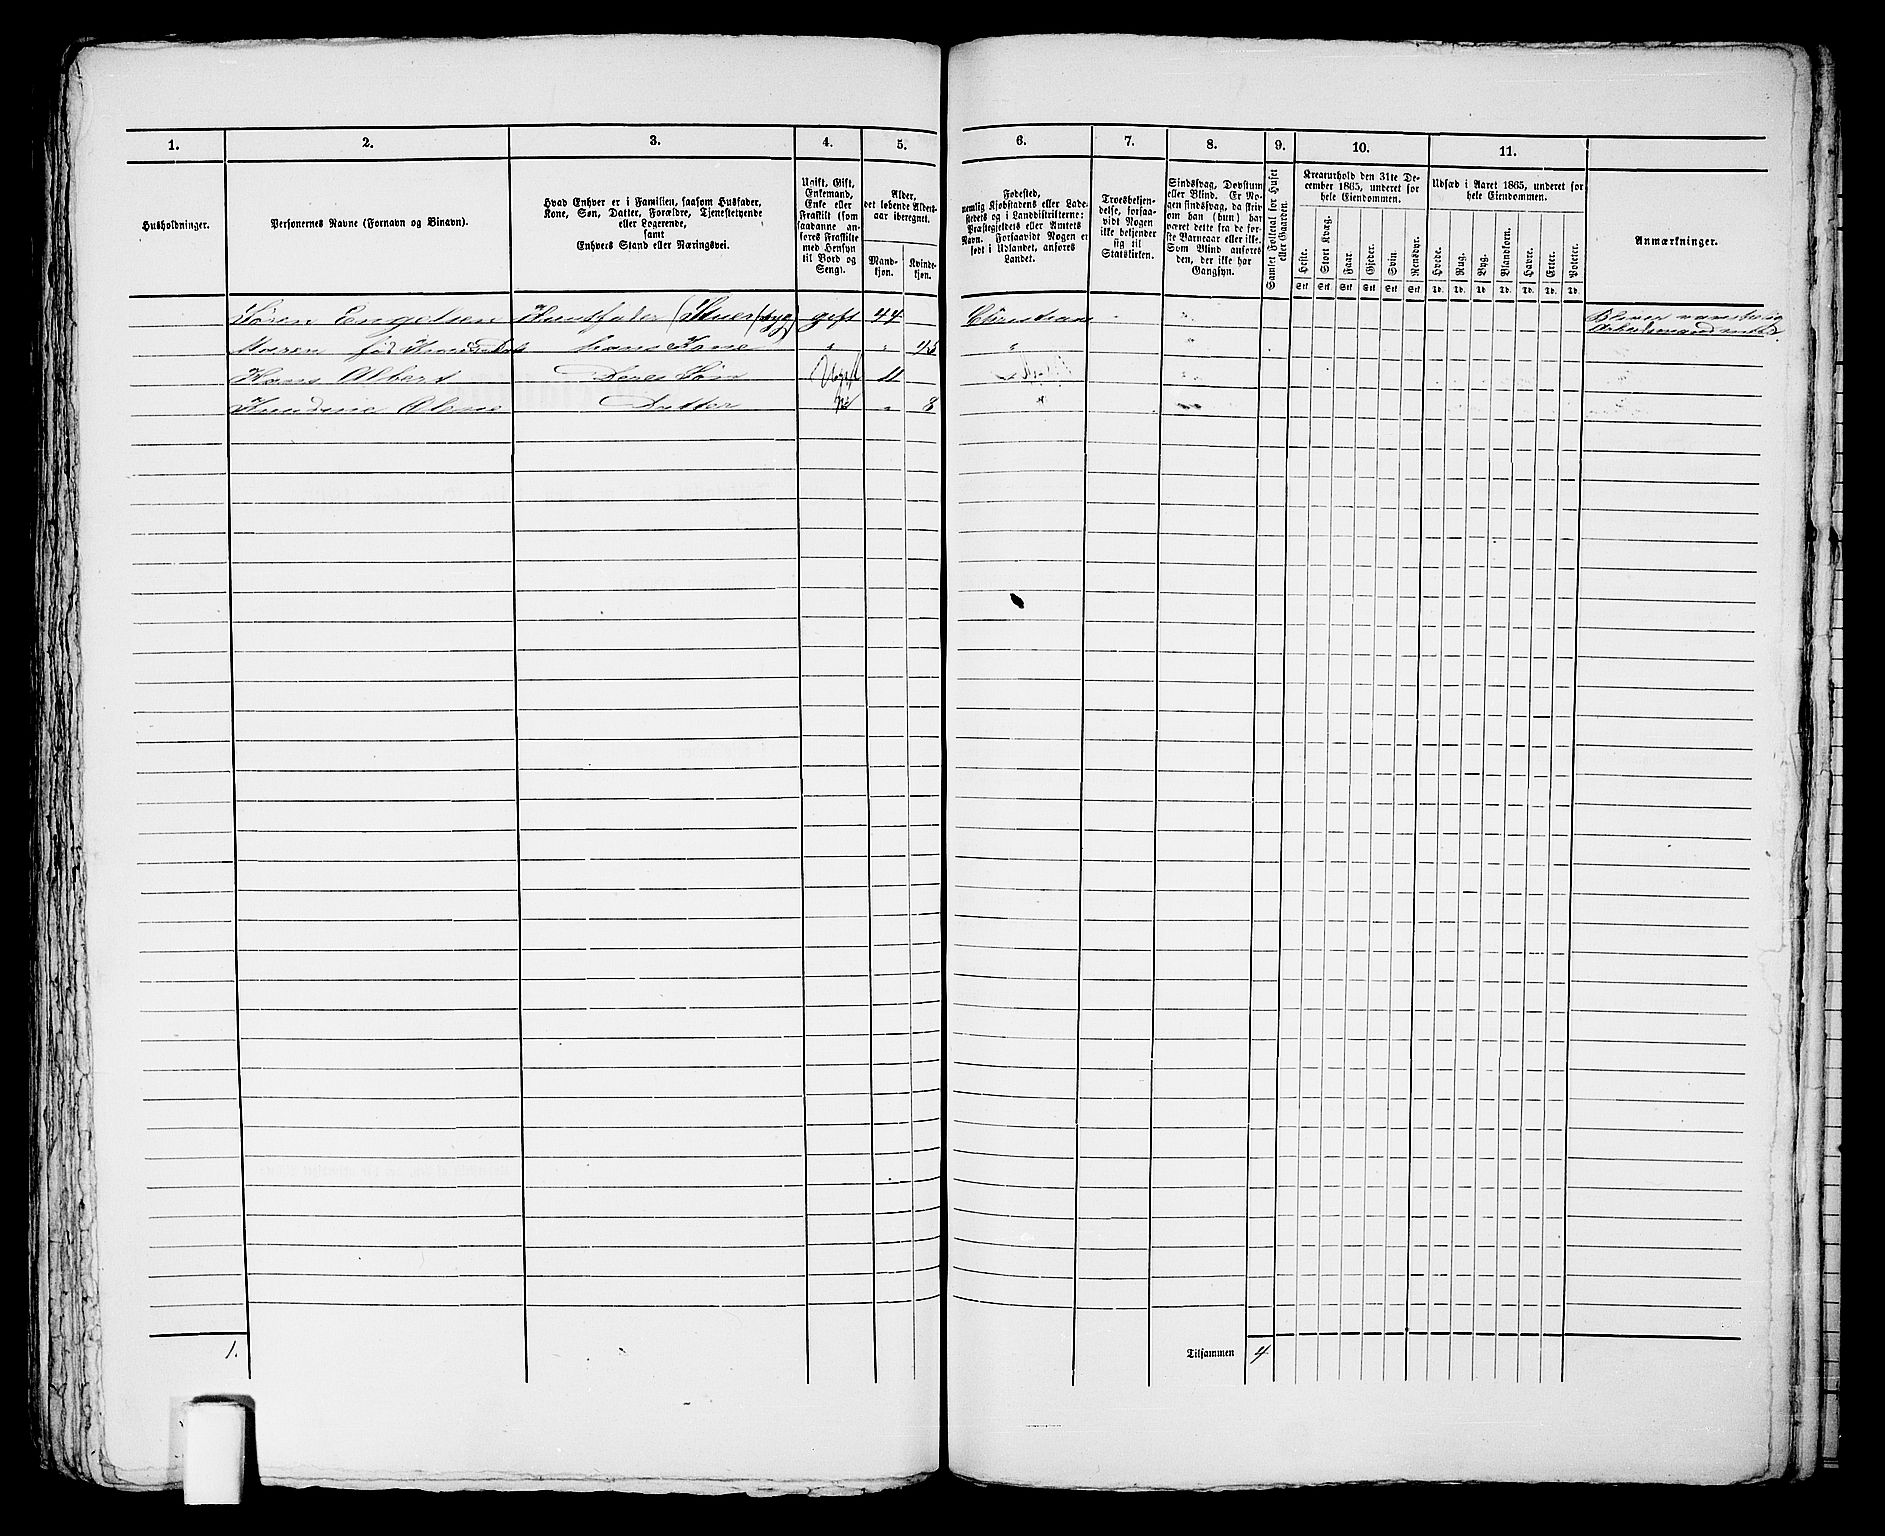 1.
2.
3.
4.
5.
6.
7.
8.
9.
10.
11.
Husholdninger.
Personernes Navne (Fornavn og Binavn).
Hvad Enhver er i Familien, saasom Husfader,
Kone, Søn, Datter, Forældre, Tjenestetyende
eller Logerende,
samt
Enhvers Stand eller Næringsvei.
Ugift, Gift,
Enkemand,
Enke eller
Fraskilt (som
saadanne an-
føres Fraskilte
med Hensyn
til Bord og
Seng).
Alder,
det løbende Alders-
aar iberegnet.
Mand-
kjøn.
Kvinde-
kjøn.
Fødested,
nemlig Kjøbstadens eller Lade-
stedets og i Landdistrikterne:
Præstegjeldets eller Amtets
Navn. Forsaavidt Nogen er
født i Udlandet, anføres
Landet.
Troesbekjen-
delse, forsaa-
vidt Nogen
ikke bekjender
sig til
Statskirken.
Sindssvag, Døvstum
eller Blind. Er No-
gen sindssvag, da hvor-
om han (hun) har
været dette fra de før-
ste Barneaar eller ikke.
Som Blind anføres
den, der ikke har
Gangsyn.
Samlet Folketal for Huset
eller Gaarden.
Kreaturhold den 31te De-
cember 1865, underet for
hele Eiendommen.
Heste.
Stort Kvæg.
Faar.
Gjeder.
Svin.
Rensdyr.
Stk Stk Stk Stk Stk Stk
Udsæd i Aaret 1865, underet for
hele Eiendommen.
Hvede.
Rug.
Byg.
Blandkorn.
Havre.
Erter.
Poteter.
Td. Td. Td Td. Td. Td. Td.
Anmærkninger.
Søren Engelsen Huusfader gift 44
Maren fød hans Kone " " 45 "
Hans Albert Deres Søn Ugift 11
Datter " 8 "
1.
Tilsammen 4